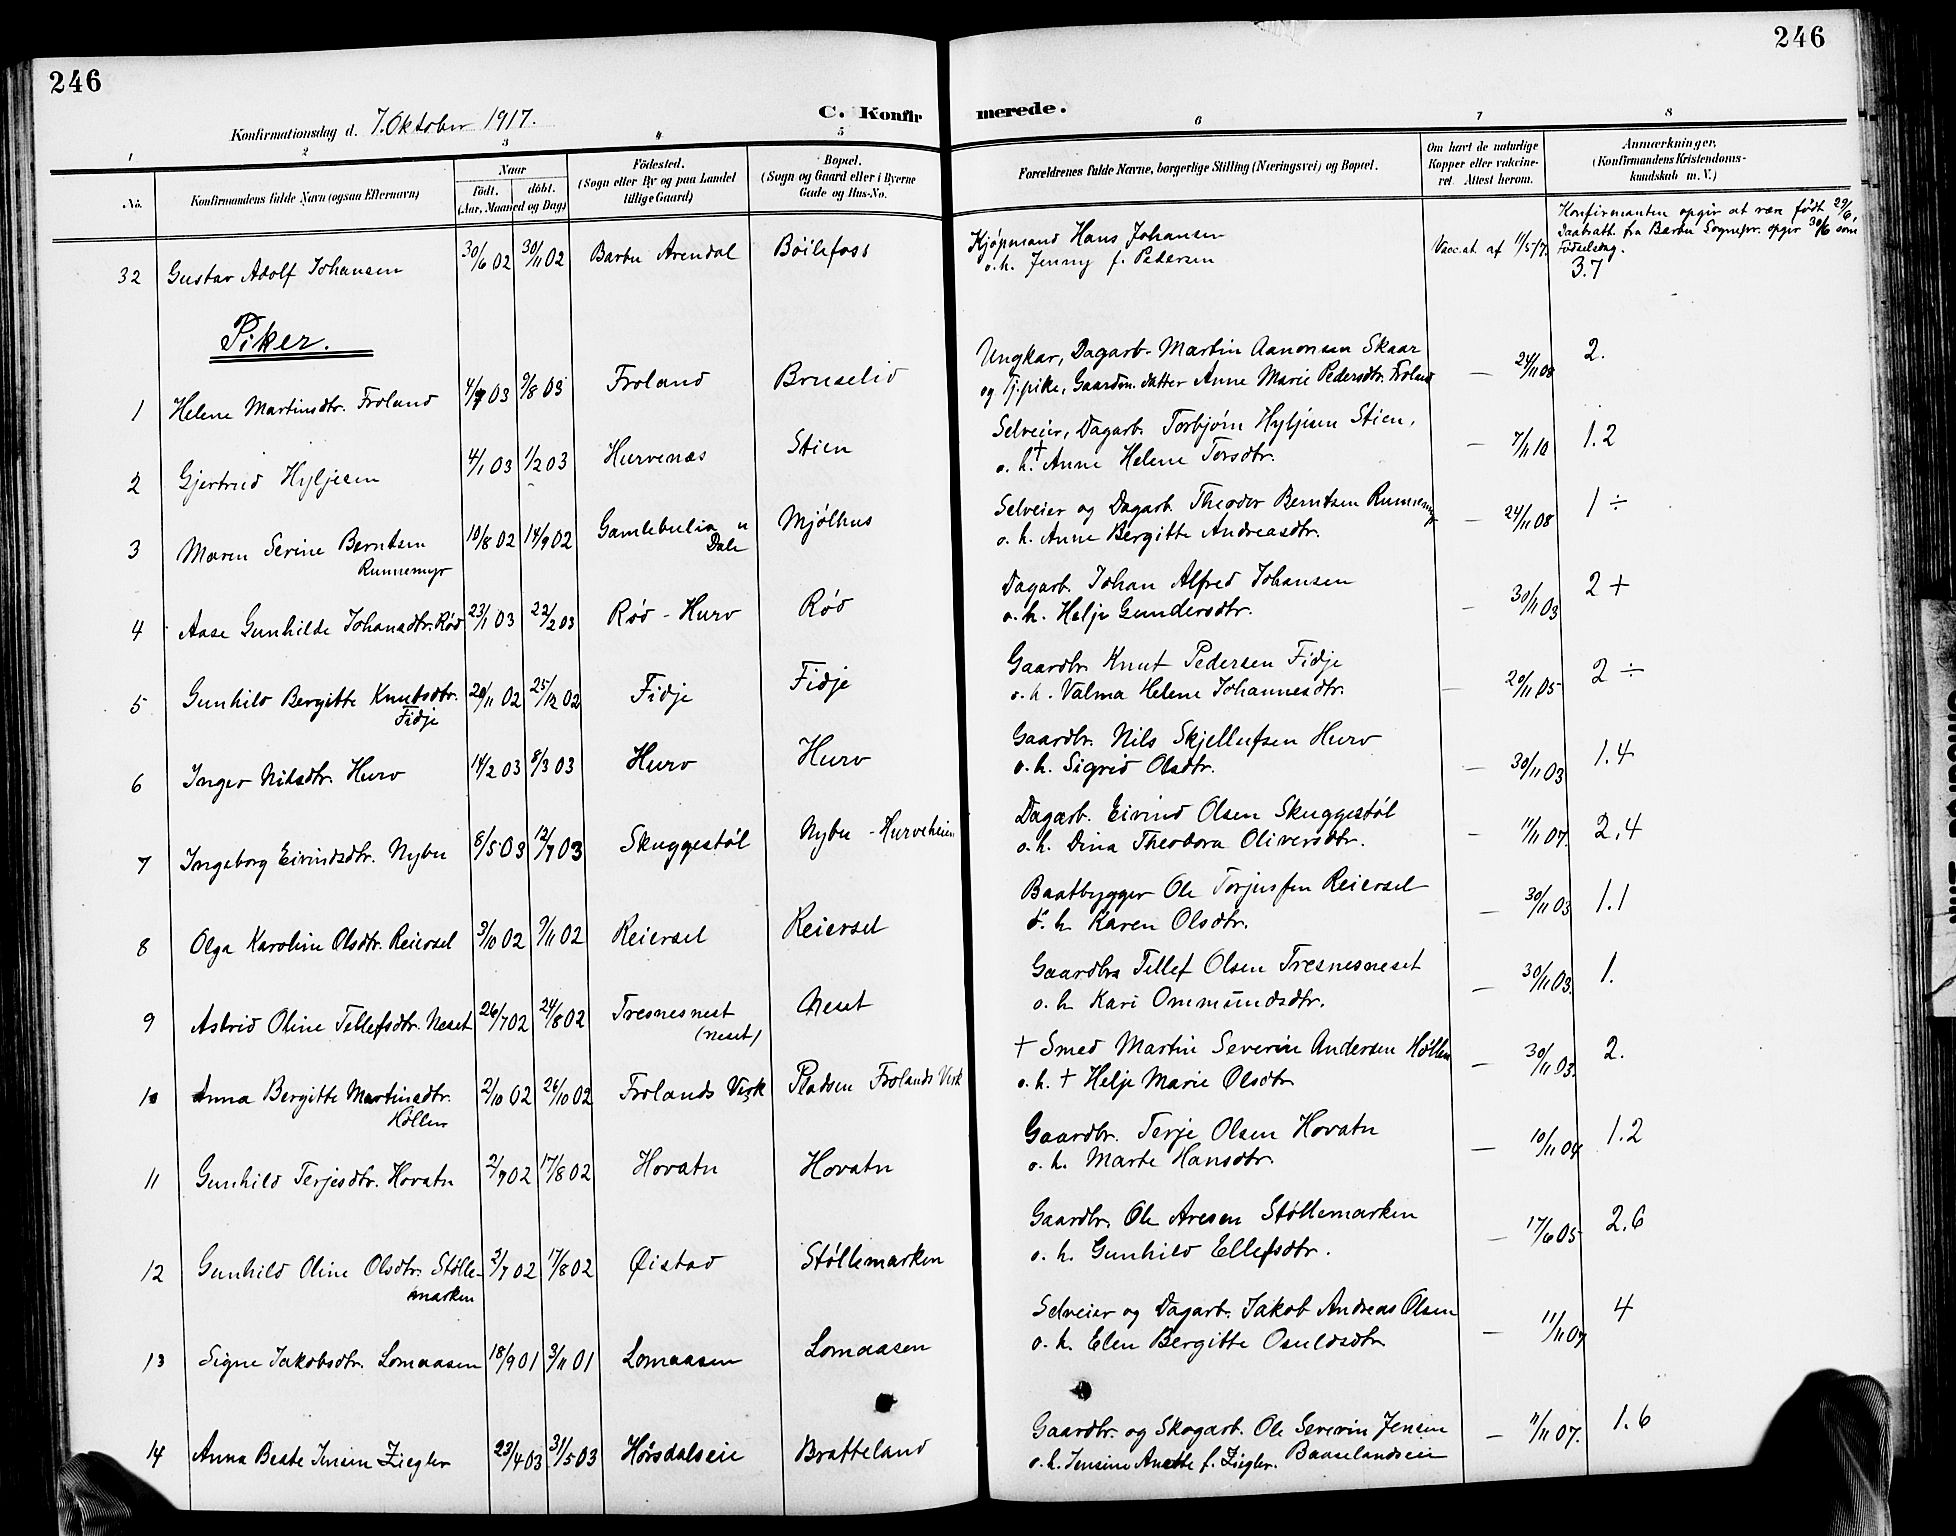 246
246
Konfirmationsdag d. 7. Oktober 1917.
C. Konfirmerede.
1 2 3 4 5 6 7 8
No. Konfirmandens fulde Navn (ogsaa Efternavn) Naar födt. döbt. (Aar, Maaned og Dag)
Födested. (Sogn eller By og paa Landet tillige Gaard)
Bopæl. (Sogn og Gaard eller i Byerne Gade og Hus-No.
Forældrenes fulde Navne, borgerlige Stilling (Næringsvei) og Bopæl.
Om havt de naturlige Kopper eller vaccineret. Attest herom.
Anmærkninger, (Konfirmandens Kristendomskundskab m. V.)
32 Gustav Adolf Johansen 30/6 02 30/11 02 Barbu Arendal Böilefoss Kjøpmand Hans Johansen
o. h. Jenny f. Pedersen Vacc.at. af 11/5 17.
Konfirmanten opgir at være født 29/6,
Daabsatt. fra Barbu Sognepr. opgir 30/6 som
Födselsdag.
3.7
Piker.
1 Helene Martinsdtr. Froland 4/7 03 9/8 03 Froland Bruselid Ungkar, Dagarb. Martin Aanonsen Skaar
og Tj.pike, Gaardm. datter Anne Marie Pedersdtr. Froland — 24/11 08 2.
2 Gjertrud Hyljesen 4/1 03 1/2 03 Hurvenæs Stien Selveier, Dagarb. Torbjørn Hyljesen Stien,
o. h. † Anne Helene Torsdtr. — 7/11 10 1.2
3 Maren Serine Berntsen
Runnemyr 10/8 02 14/9 02 Gamlebulia u
Dale Mjølhus Selveier og Dagarb. Theodor Berntsen Runnemyr
o. h. Anne Bergitte Andreasdtr. — 24/11 08 1 ÷
4 Aase Gunhilde Johansdtr. Rød 23/1 03 22/2 03 Rød - Hurv Rød Dagarb. Johan Alfred Johansen
o. h. Helje Gundersdtr. — 30/11 03 2 +
5 Gunhild Bergitte Knutsdtr.
Fidje 20/11 02 25/12 02 Fidje Fidje Gaardbr. Knut Pedersen Fidje
o. h. Valma Helene Johannesdtr. — 20/11 05 2 ÷
6 Inger Nilsdtr. Hurv 14/2 03 8/3 03 Hurv Hurv Gaardbr. Nils Skjellufsen Hurv
o. h. Sigrid Olsdtr. — 30/11 03 1.4
7 Ingeborg Eivindsdtr. Nybu 8/5 03 12/7 03 Skuggestøl Nybu - Hurveheien Dagarb. Eivind Olsen Skuggestøl
o. h. Dina Theodora Oliversdtr. — 11/11 07. 2.4
8 Olga Karoline Olsdtr. Reiersel 3/10 02 9/11 02 Reiersel Reiersel Baatbygger Ole Torjussen Reiersel
o. h. Karen Olsdtr. — 30/11 03 1.1
9 Astrid Oline Tellefsdtr. Neset 26/7 02 24/8 02 Tresnesnest
(neset) Neset Gaardbr. Tellef Olsen Tresnesneset
o. h. Kari Ommundsdtr. — 30/11 03. 1.
10 Anna Bergitte Martinsdtr.
Höllen 2/10 02 26/10 02 Frolands Verk Pladsen Frolands Verk † Smed Martin Severin Andersen Höllen
o. h. † Helje Marie Olsdtr — 30/11 03. 2.
11 Gunhild Terjesdtr. Hovatn 2/7 02 17/8 02 Hovatn Hovatn Gaardbr. Terje Olsen Hovatn
o. h. Marte Hansdtr. — 10/11 04 1.2
12 Gunhild Oline Olsdtr. Stølle-
marken 3/7 02 17/8 02 Øistad Støllemarken Gaardbr. Ole Aresen Støllemarken
o. h. Gunhild Ellefsdtr. — 17/6 05 2.6
13 Signe Jakobsdtr. Lomaasen 18/9 01 3/11 01 Lomaasen Lomaasen Selveier og Dagarb. Jakob Andreas Olsen
o. h. Elen Bergitte Osuldsdtr — 11/11 07 4
14 Anna Beate Jensen Ziegler 23/4 03 31/5 03 Hørsdalseie Bratteland Gaardbr. og Skogarb. Ole Severin Jensen
o. h. Jensine Anette f. Ziegler. Baaselandseie — 11/11 07. 1.6